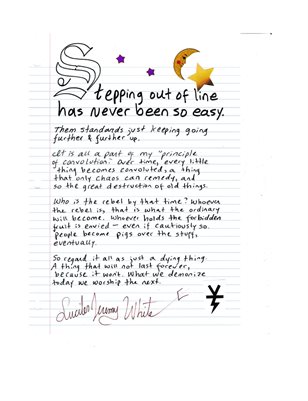 Stepping out of line
has never been so easy.
Them standards just keeping going
further & further up.
It is all a part of my "principle
of convolution." Over time, every little
thing becomes convoluted, a thing
that only chaos can remedy, and
so the great destruction of old things.
Who is the rebel by that time? Whoever
the rebel is, that is what the ordinary
will become. Whoever holds the forbidden
fruit is envied – even if cautiously so.
People become pigs over the stuff,
eventually.
So regard it all as just a dying thing.
A thing that will not last forever,
because it won't. What we demonize
today we worship the next.
Lucifer Jeremy White